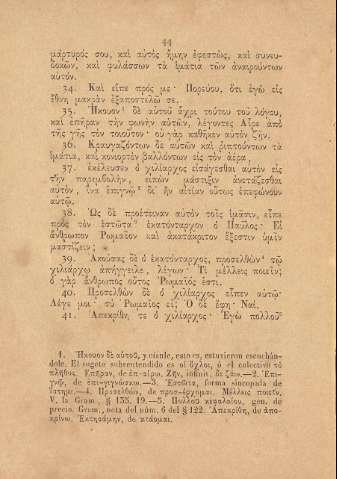 44
μάρτυρός σου, καὶ αὐτὸς ἤμην ἐφεστὼς, καὶ συνευ-
δοκῶν, καὶ φυλάσσων τὰ ἱμάτια τῶν ἀναιρούντων
αὐτόν.
34. Καὶ εἶπε πρός με· Πορεύου, ὅτι ἐγὼ εἰς
ἔθνη μακρὰν ἐξαποστελῶ σε.
35. Ἤκουον¹ δὲ αὐτοῦ ἄχρι τούτου τοῦ λόγου,
καὶ ἐπῆραν τὴν φωνὴν αὐτῶν, λέγοντες Αἶρε ἀπὸ
τῆς γῆς τὸν τοιοῦτον· οὐ γὰρ καθῆκεν αὐτὸν ζῆν.
36. Κραυγαζόντων δὲ αὐτῶν καὶ ῥιπτούντων τὰ
ἱμάτια, καὶ κονιορτὸν βαλλόντων εἰς τὸν ἀέρα,
37. ἐκέλευσεν ὁ χιλίαρχος εἰσάγεσθαι αὐτὸν εἰς
τὴν παρεμβολὴν, εἰπὼν μάστιξιν ἀνετάζεσθαι
αὐτὸν, ἵνα ἐπιγνῷ² δι᾽ ἣν αἰτίαν οὕτως ἐπεφώνουν
αὐτῷ.
38. Ὡς δὲ προέτειναν αὐτὸν τοῖς ἱμᾶσιν, εἶπε
πρὸς τὸν ἑστῶτα³ ἑκατόνταρχον ὁ Παῦλος· Εἰ
ἄνθρωπον Ῥωμαῖον καὶ ἀκατάκριτον ἔξεστιν ὑμῖν
μαστίζειν;
39. Ἀκούσας δὲ ὁ ἑκατόνταρχος, προσελθὼν⁴ τῷ
χιλιάρχῳ ἀπήγγειλε, λέγων· Τί μέλλεις ποιεῖν;
ὁ γὰρ ἄνθρωπος οὗτος Ῥωμαῖός ἐστι.
40. Προσελθὼν δὲ ὁ χιλίαρχος εἶπεν αὐτῷ·
Λέγε μοι· σὺ Ῥωμαῖος εἶ; Ὁ δὲ ἔφη· Ναί.
41. Ἀπεκρίθη τε ὁ χιλίαρχος· Ἐγὼ πολλοῦ⁵
1. Ἤκουον δὲ αὐτοῦ, y oíanle, esto es, estuvieron escuchán-
dole. El sugeto sobrentendido es οἱ ὄχλοι, ó el colectivo τὸ
πλῆθος. Ἐπῆραν, de ἐπ-αίρω. Ζῆν, infinit. de ζάω.—2. Ἐπι-
γνῷ, de ἐπι-γιγνώσκω.—3. Ἑστῶτα, forma sincopada de
ἵστημι.—4. Προσελθὼν, de προσ-έρχομαι. Μέλλεις ποιεῖν,
V. la Gram., § 135. 19.—5. Πολλοῦ κεφαλαίου, gen. de
precio. Gram., nota del núm. 6 del § 122. Ἀπεκρίθη, de ἀπο-
κρίνω. Ἐκτησάμην, de κτάομαι.